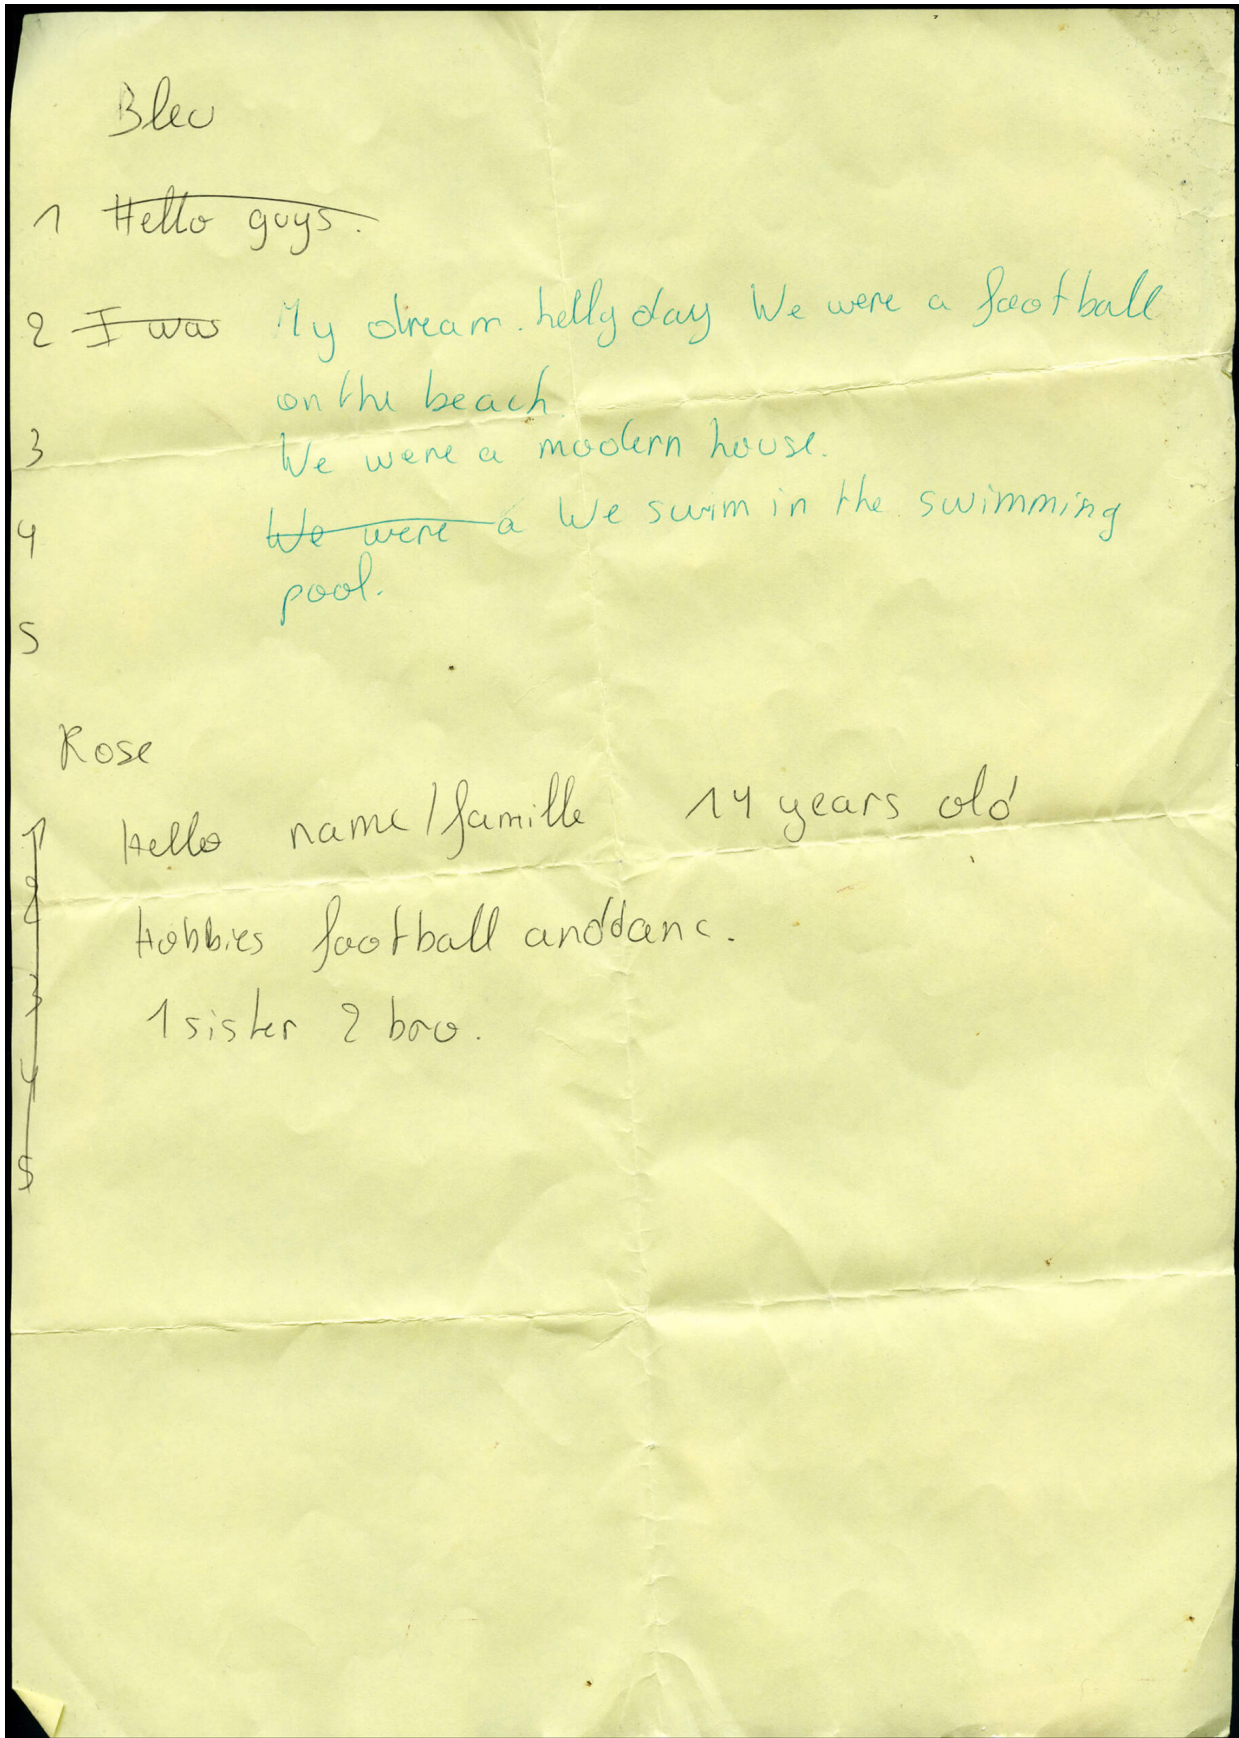 Bleu
1 Hello guys.
2 I was My dream. helly day We were a football
on the beach
3 We were a modern house.
4 We were a We swim in the swimming
pool.
5
Rose
1 Hello name/famille 14 years old
2
Hobbies football and danc.
3 1 sister 2 bro.
4
5